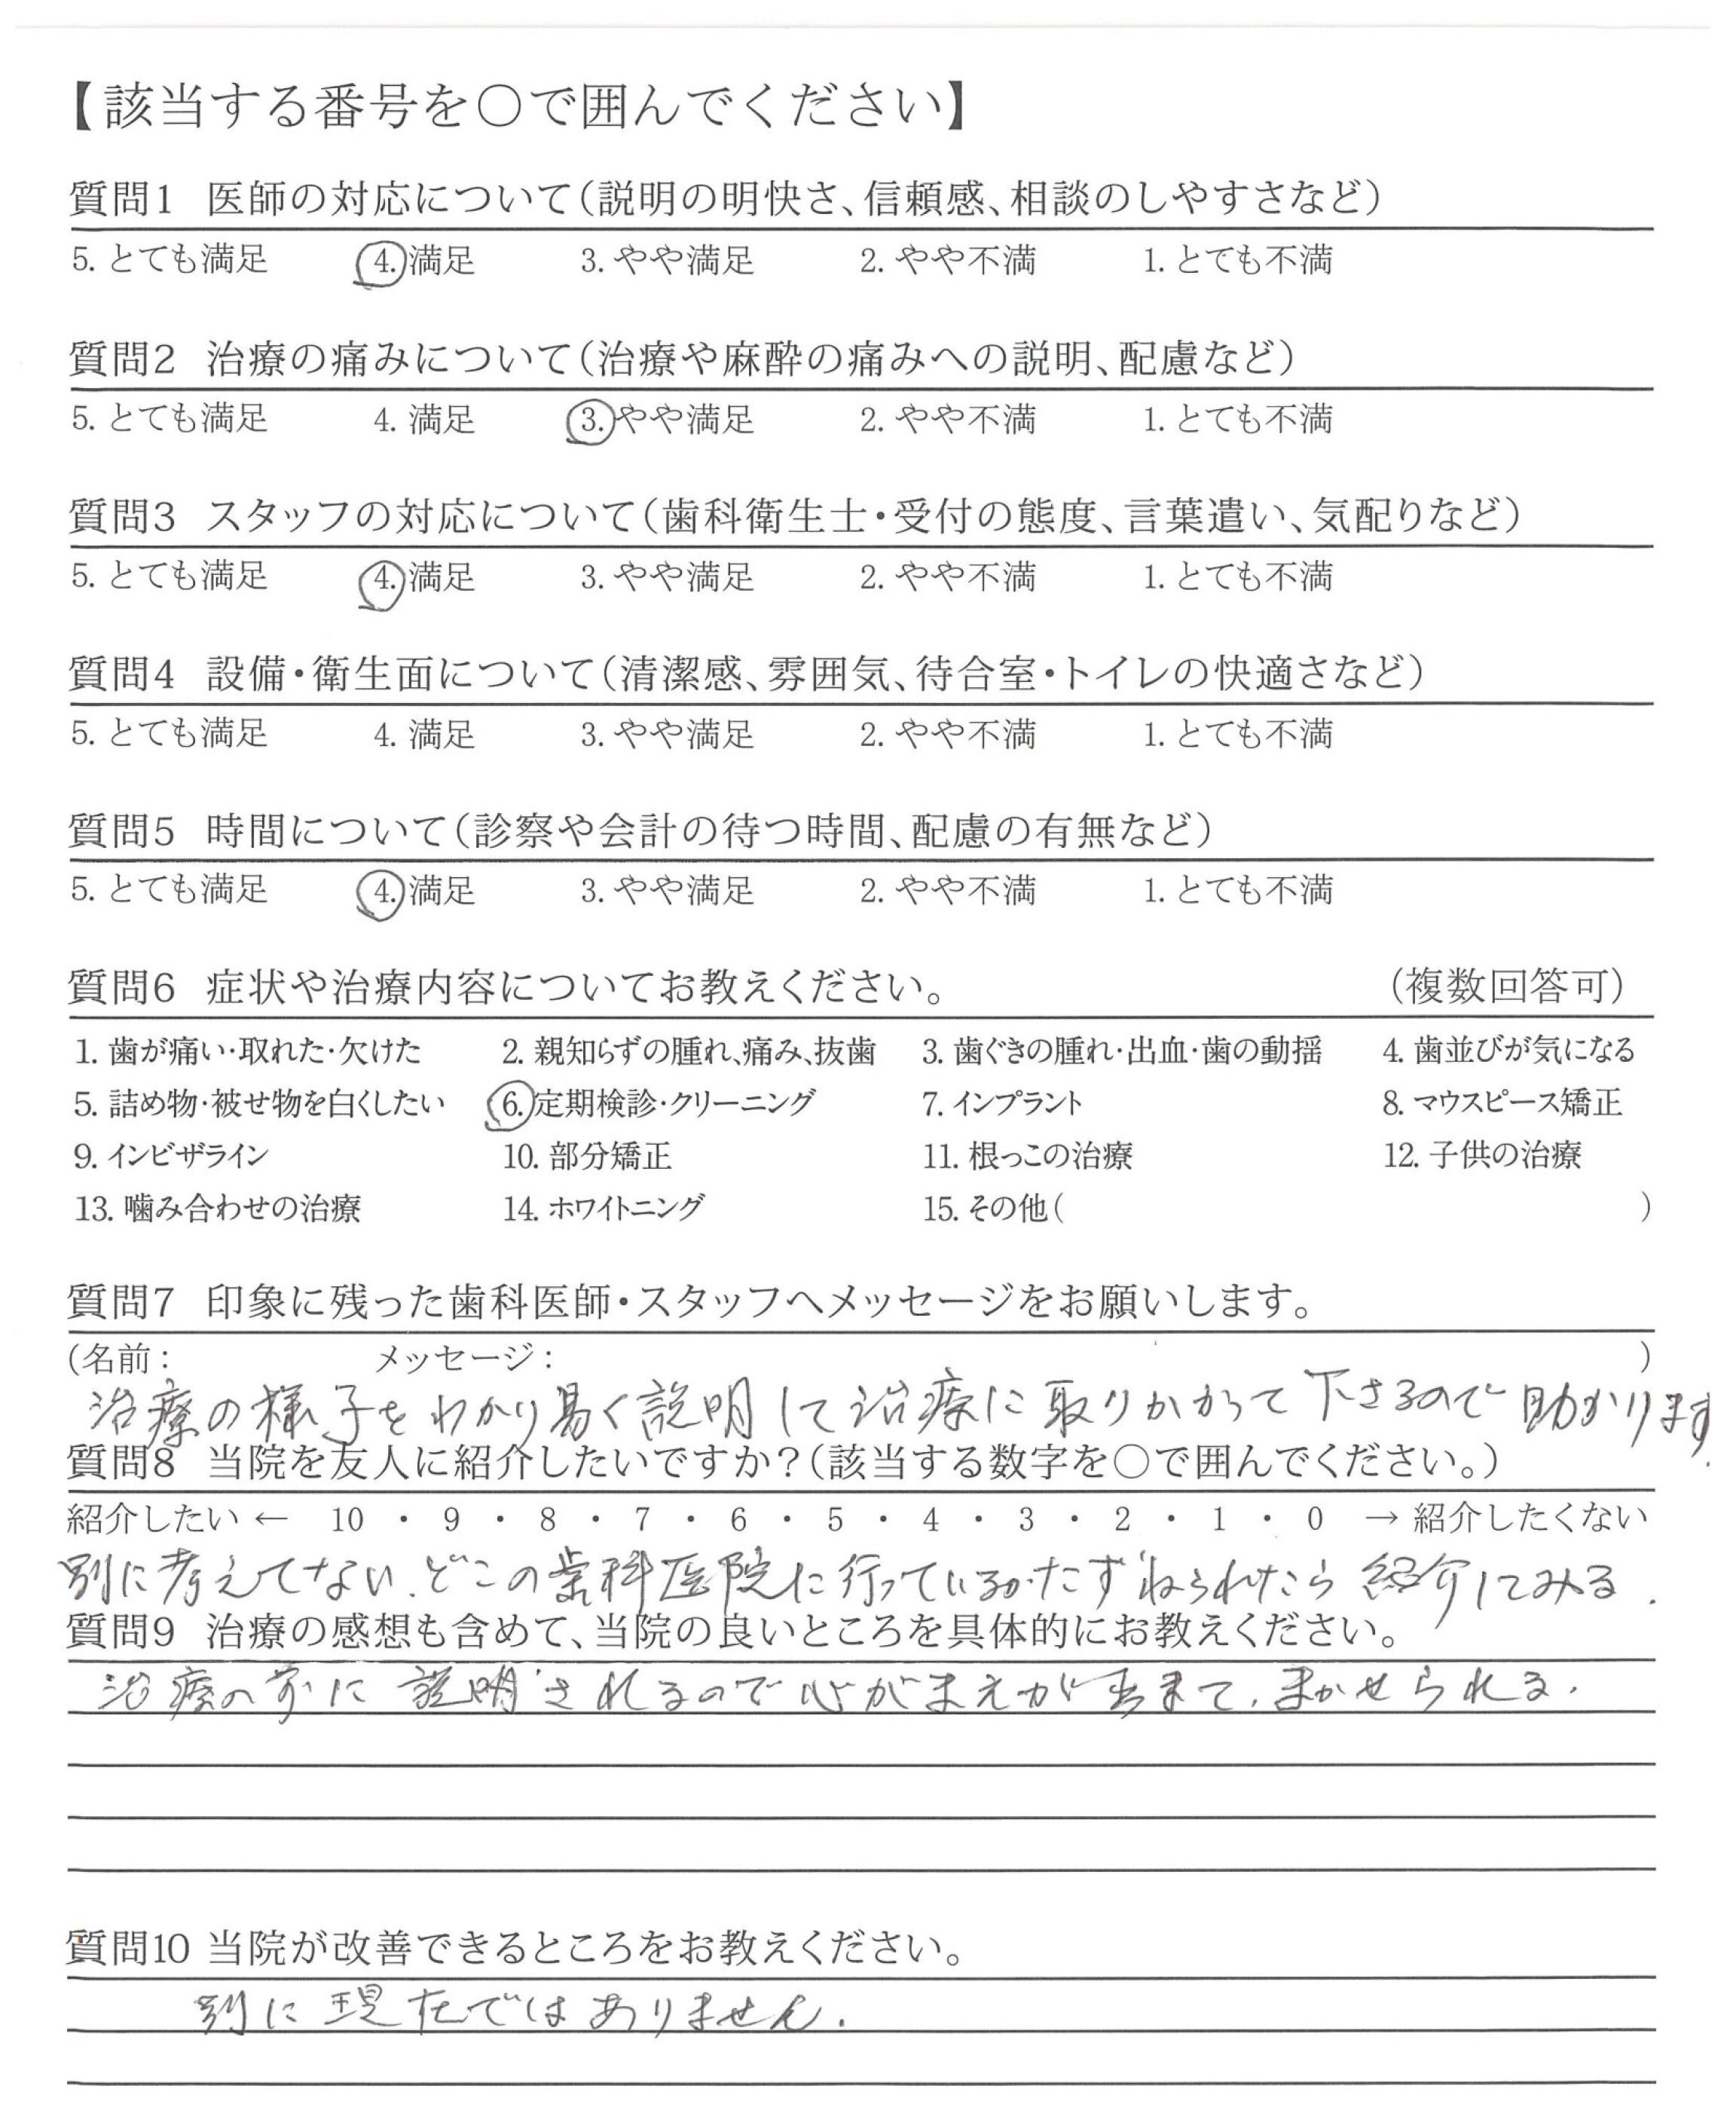 【該当する番号を○で囲んでください】
質問1 医師の対応について(説明の明快さ、信頼感、相談のしやすさなど)
5. とても満足 4. 満足 3. やや満足 2. やや不満 1. とても不満
質問2 治療の痛みについて(治療や麻酔の痛みへの説明、配慮など)
5. とても満足 4. 満足 3. やや満足 2. やや不満 1. とても不満
質問3 スタッフの対応について(歯科衛生士・受付の態度、言葉遣い、気配りなど)
5. とても満足 4. 満足 3. やや満足 2. やや不満 1. とても不満
質問4 設備・衛生面について(清潔感、雰囲気、待合室・トイレの快適さなど)
5. とても満足 4. 満足 3. やや満足 2. やや不満 1. とても不満
質問5 時間について(診察や会計の待つ時間、配慮の有無など)
5. とても満足 4. 満足 3. やや満足 2. やや不満 1. とても不満
質問6 症状や治療内容についてお教えください。 (複数回答可)
1. 歯が痛い・取れた・欠けた 2. 親知らずの腫れ、痛み、抜歯 3. 歯ぐきの腫れ・出血・歯の動揺 4. 歯並びが気になる
5. 詰め物・被せ物を白くしたい 6. 定期検診・クリーニング 7. インプラント 8. マウスピース矯正
9. インビザライン 10. 部分矯正 11. 根っこの治療 12. 子供の治療
13. 噛み合わせの治療 14. ホワイトニング 15. その他( )
質問7 印象に残った歯科医師・スタッフへメッセージをお願いします。
(名前: メッセージ: )
治療の様子をわかり易く説明して治療に取りかかって下さるので助かります.
質問8 当院を友人に紹介したいですか?(該当する数字を○で囲んでください。)
紹介したい ← 10 ・ 9 ・ 8 ・ 7 ・ 6 ・ 5 ・ 4 ・ 3 ・ 2 ・ 1 ・ 0 → 紹介したくない
別に考えてない.どこの歯科医院に行っているかたずねられたら紹介してみる.
質問9 治療の感想も含めて、当院の良いところを具体的にお教えください。
治療の前に説明されるので心がまえが出来て、まかせられる.
質問10 当院が改善できるところをお教えください。
別に現在ではありません.